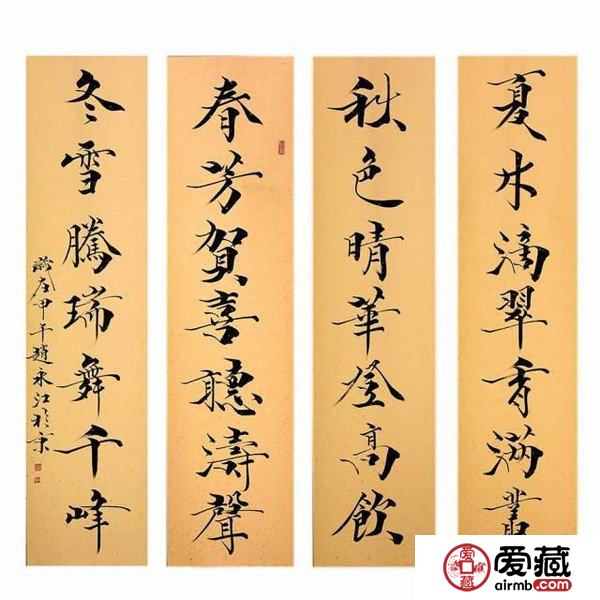 夏木滴翠香滿叢
秋色晴華登高飲
春芳賀喜聽濤聲
冬雪騰瑞舞千峰
歲在甲午趙永江於京
爱藏
爱藏
airmb.com